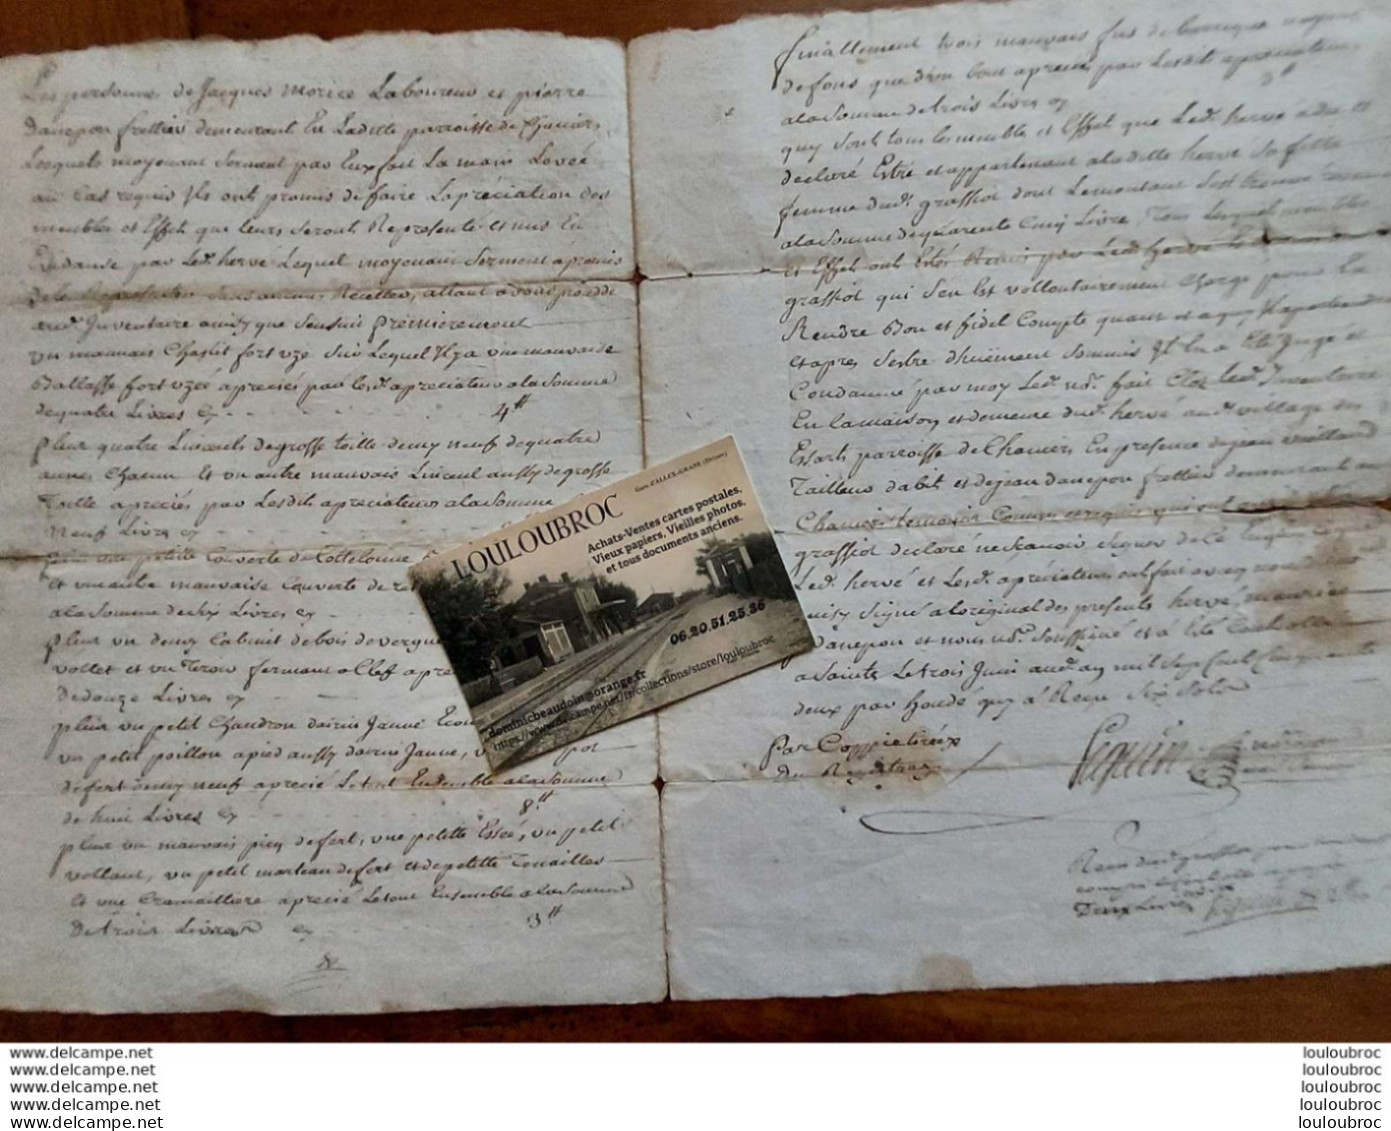 Les personnes de Jacques Morice Laboureur et pierre
danepon frettier demeurant En Laditte paroisse de Chaniers
Lesquels moyenant Serment par Eux fait La main Levée
au Cas requis Ils ont promis de faire Lapréciation des
meubles et Effet que leurs Seront Represente et mis En
Evidance par Led. hervé Lequel moyenant Serment a promis
de Representer Sans aucuns Recellee, attant avons proceddé
aud. Inventaire ainsy que Sensuit premierement
un mauvais Chaslit fort uzé Sur Lequel Il ya une mauvaise
Ballasse fort uzée apreciés par lesd. apreciateurs a la Somme
de quatre Livres Cy 4 ₶
plus quatre Linceuls de grosse toille demy neuf de quatre
aunes Chacun Et un autre mauvais Linceul aussy de grosse
Toille apreciés par Lesdits apreciateurs a la Somme
Neuf Livres Cy
une petitte Couverte de Cottelonne
et une autre mauvaise Couverte de
a la Somme de Six Livres Cy
plus un demy Cabinet de bois de vergne
vollet et un Tiroir fermant a Clef
De douze Livres Cy
plus un petit Chaudron dairin Jaune
un petit poillon a pied aussy dairin Jaune, pot
de fert demy neuf aprecié Le tout Ensemble a la Somme
de huit Livres Cy 8 ₶
plus un mauvais pieq de fert, une petitte Essée, un petit
vollant, un petit marteau de fert et de petitte Tenailles
et une Cramaillere aprecié Le tout Ensemble a la Somme
De trois Livres Cy 3 ₶
finallement trois mauvais fus de barrique
defons que d'un bout apreciés par Lesdit apreciateurs
a la Somme de trois Livres Cy 3 ₶
quy Sont tous les meuble et Effet que Led. hervé a dit et
declaré Estre et appartenant a Laditte hervé Sa fille
femme dud. grassiot dont Le montant Sest trouvé
a la Somme de quarente Cinq Livre, Tous Lesquels meubles
et Effet ont Estés Remis par Led. hervé
grassiot qui Sen Est vollontairement Chargé pour En
Rendre Bon et fidel Compte quant et a quy Il apartiendra
et apres Sestre dhuëment Soumis Il En a Eté Jugé et
Condamné par moy Led. no. fait Clos Led. Inventaire
En La maison et demeure dud. hervé aud. village des
Essarts paroisse de Chaniers En presence de jean
Tailleur dabits et de jean danepon frettier demeurant
Chaniers temoins Connu et requis qui
grassiot declaré ne Scavoir Signer de Ce Enquis
Led. hervé et Lesd. apréciateurs ont fait avec
Signé a loriginal des presents hervé, maurice
danepon et nous no. Soussigné et a été Controllé
a Saintes Le trois Juin aud. an mil Sept Cent Cinquante
deux par hondé quy a Receu Six Sols
Par Coppie
Seguin
Receu dud. grassiot
compris
Deux Livres
LOULOUBROC
Gare d'ALLEX-GRANE (Drôme)
Achats-Ventes cartes postales,
Vieux papiers, Vieilles photos,
et tous documents anciens.
06.20.51.25.36
dominicbeaudoin@orange.fr
https://www.delcampe.net/fr/collections/store/louloubroc
www.delcampe.net
www.delcampe.net
www.delcampe.net
www.delcampe.net
www.delcampe.net
louloubroc
louloubroc
louloubroc
louloubroc
louloubroc